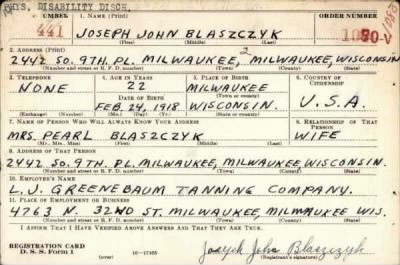 PHYS. DISABILITY DISCH.
UMBER 1. NAME (Print) ORDER NUMBER
441 JOSEPH JOHN BLASZCZYK V
(First) (Middle) (Last)
2. ADDRESS (Print) 2
2442 SO. 9TH. PL. MILWAUKEE, MILWAUKEE, WISCONSIN
(Number and street or R. F. D. number) (Town) (County) (State)
3. TELEPHONE 4. AGE IN YEARS 5. PLACE OF BIRTH 6. COUNTRY OF CITIZENSHIP
NONE 22 MILWAUKEE
DATE OF BIRTH (Town or county)
FEB. 24, 1918 WISCONSIN. U.S.A.
(Exchange) (Number) (Mo.) (Day) (Yr.) (State or country)
7. NAME OF PERSON WHO WILL ALWAYS KNOW YOUR ADDRESS 8. RELATIONSHIP OF THAT PERSON
MRS. PEARL BLASZCZYK WIFE
(Mr., Mrs., Miss) (First) (Middle) (Last)
9. ADDRESS OF THAT PERSON
2442 SO. 9TH. PL. MILWAUKEE, MILWAUKEE, WISCONSIN.
(Number and street or R. F. D. number) (Town) (County) (State)
10. EMPLOYER'S NAME
L. J. GREENEBAUM TANNING COMPANY.
11. PLACE OF EMPLOYMENT OR BUSINESS
4763 N. 32ND ST. MILWAUKEE, MILWAUKEE WIS.
(Number and street or R. F. D. number) (Town) (County) (State)
I AFFIRM THAT I HAVE VERIFIED ABOVE ANSWERS AND THAT THEY ARE TRUE.
REGISTRATION CARD
D. S. S. Form 1 (over) 16-17105 Joseph John Blaszczyk
(Registrant's signature)